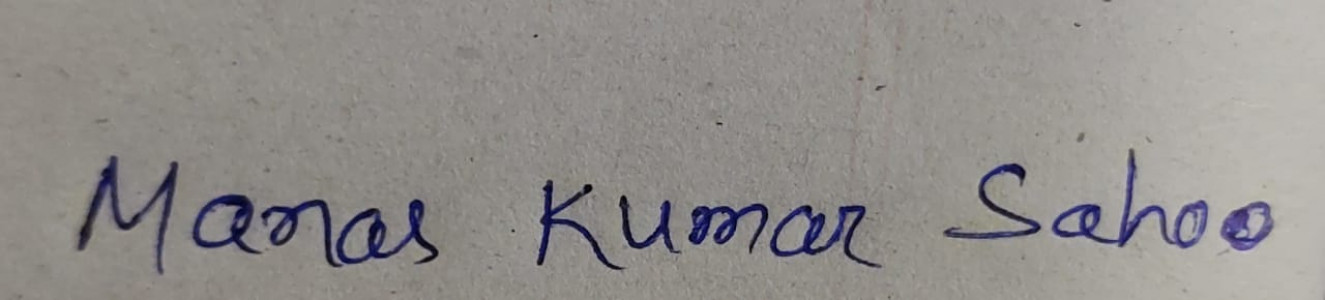 Manas Kumar Sahoo